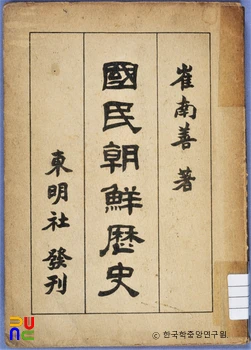 崔南善 著
國民朝鮮歷史
東明社 發刊
PUNC
ⓒ 한국학중앙연구원